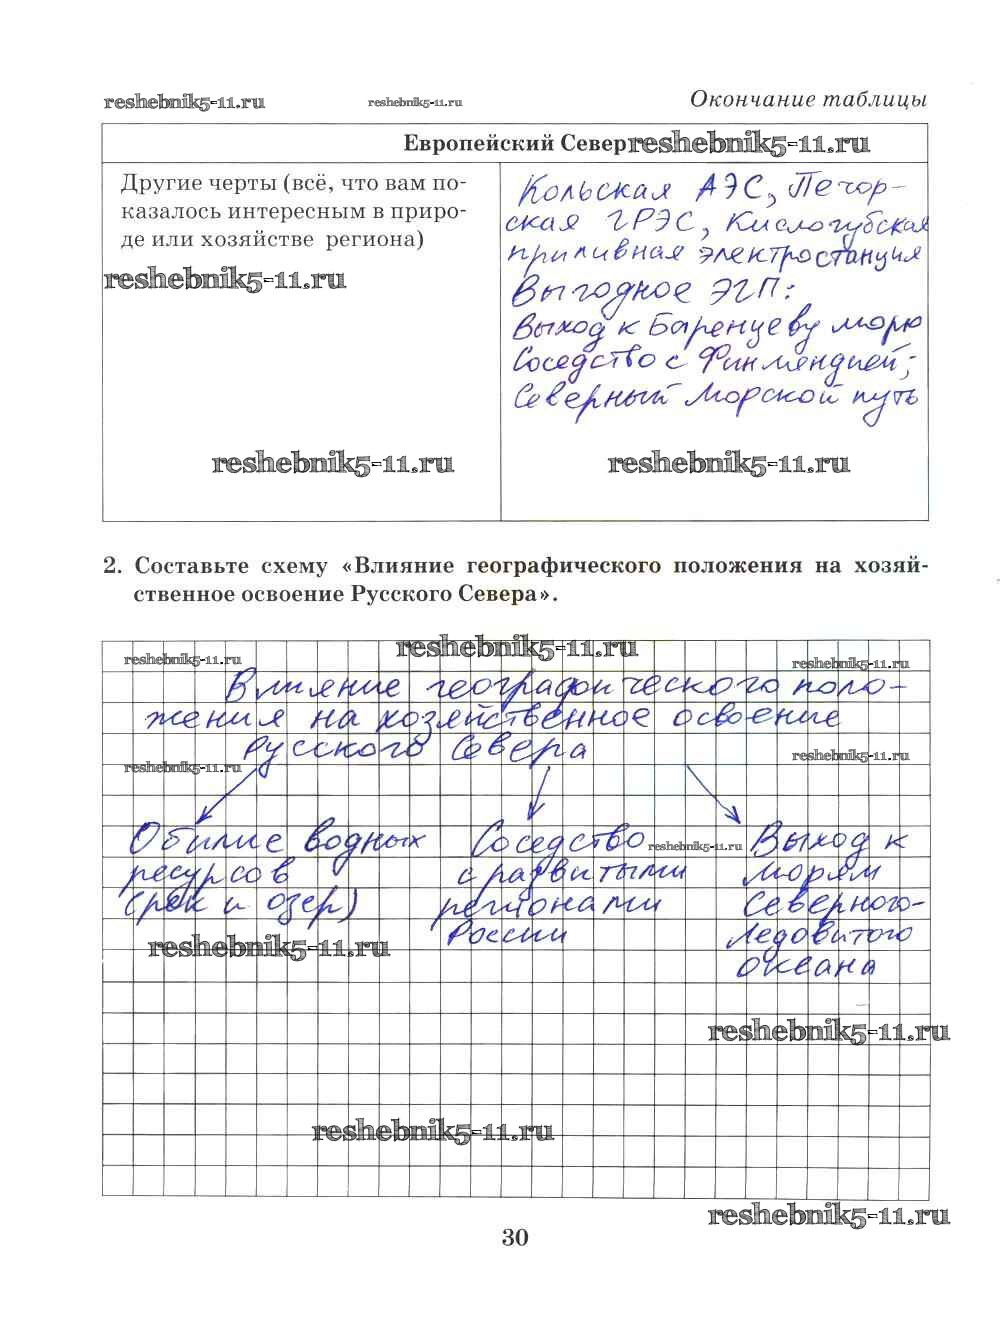 reshebnik5-11.ru reshebnik5-11.ru Окончание таблицы
Европейский Север reshebnik5-11.ru
Другие черты (всё, что вам по-
казалось интересным в приро-
де или хозяйстве региона)
reshebnik5-11.ru
Кольская АЭС, Печор-
ская ГРЭС, Кислогубская
приливная электростанция
Выгодное ЭГП:
Выход к Баренцеву морю
Соседство с Финляндией;
Северный морской путь
reshebnik5-11.ru reshebnik5-11.ru
2. Составьте схему «Влияние географического положения на хозяй-
ственное освоение Русского Севера».
reshebnik5-11.ru
reshebnik5-11.ru reshebnik5-11.ru
Влияние географического поло-
жения на хозяйственное освоение
Русского Севера
reshebnik5-11.ru reshebnik5-11.ru
Обилие водных
ресурсов
(рек и озер)
Соседство
с развитыми
регионами
России
reshebnik5-11.ru
Выход к
морям
Северного-
Ледовитого
океана
reshebnik5-11.ru
reshebnik5-11.ru
reshebnik5-11.ru
reshebnik5-11.ru
30